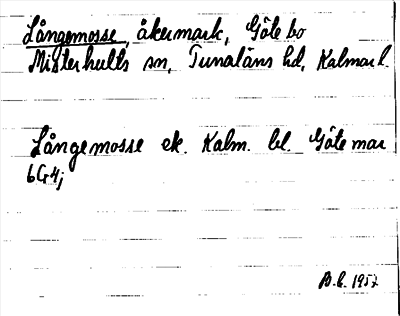 Långemosse, åkermark, Göte bo
Misterhults sn, Tunaläns hd, Kalmar l.
Långemosse ek. Kalm. bl. Götemar
6G4j
B.E. 1957